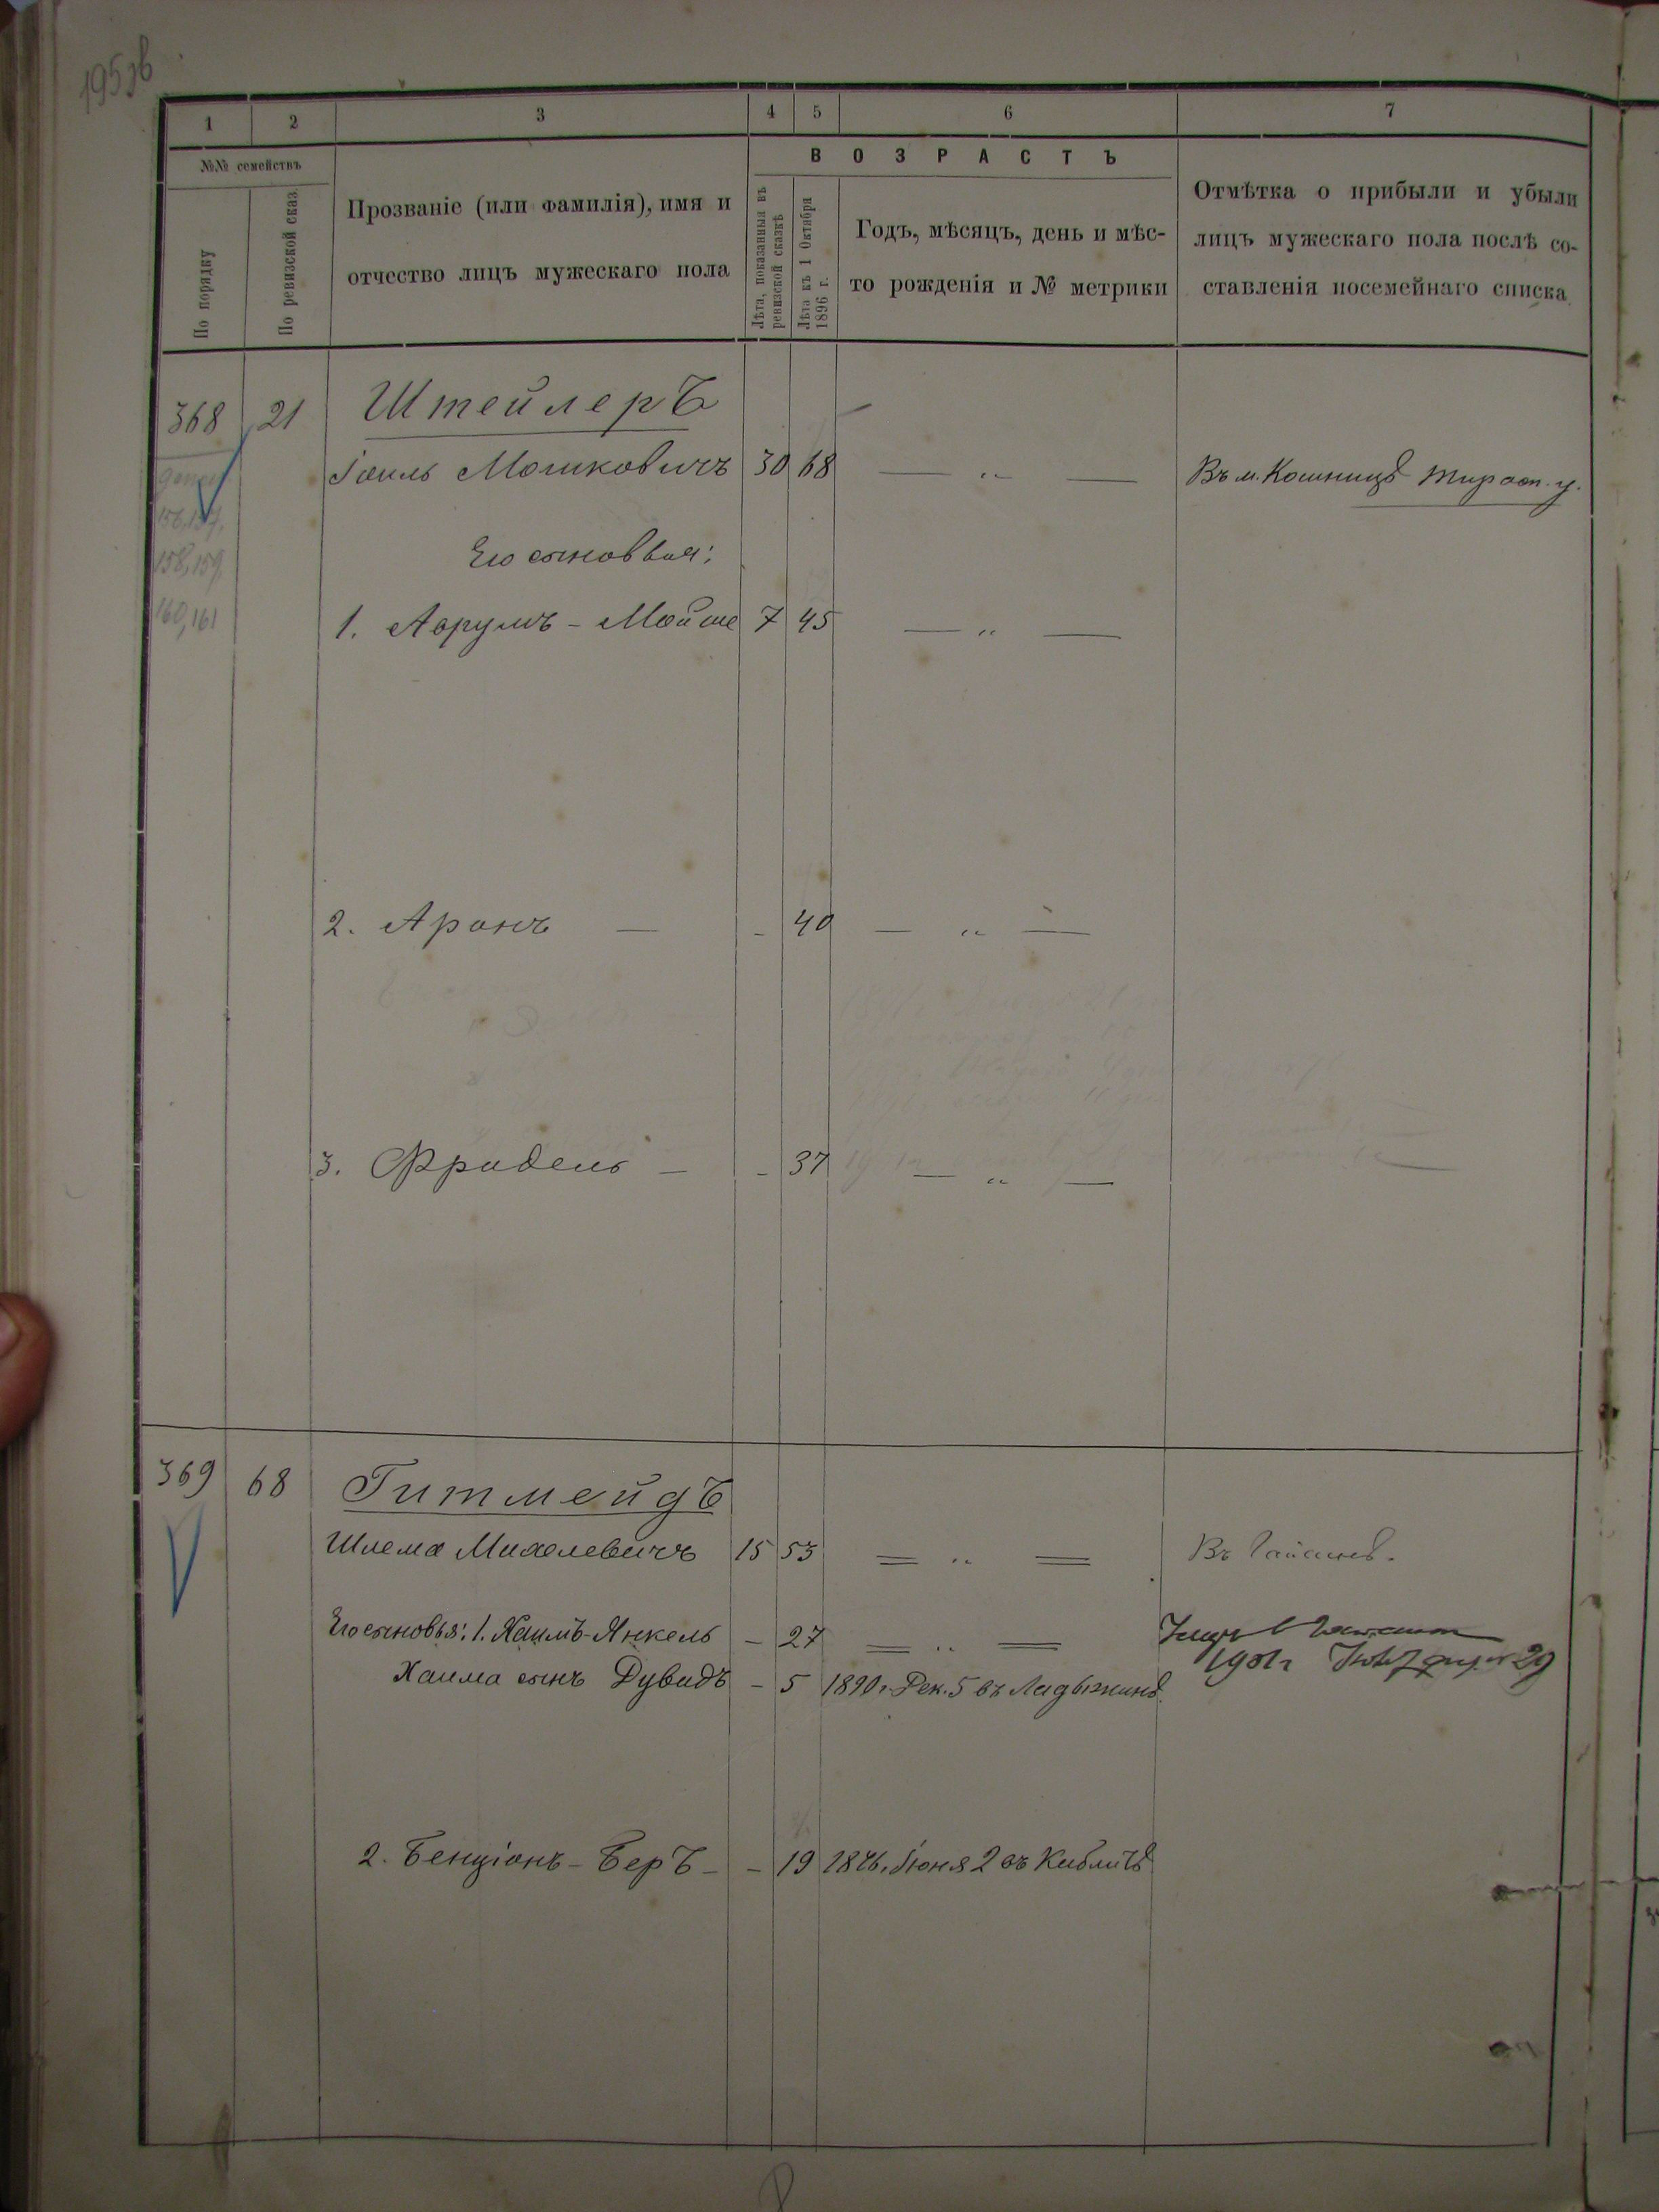 195об
1 2 3 4 5 6 7
№№ семействъ
По порядку
По ревизской сказ
Прозваніе (или фамилія), имя и
отчество лицъ мужескаго пола
ВОЗРАСТЪ
Лѣта, показанныя въ
ревизской сказкѣ
Лѣта къ 1 Октября
1896 г.
Годъ, мѣсяцъ, день и мѣс-
то рожденія и № метрики
Отмѣтка о прибыли и убыли
лицъ мужескаго пола послѣ со-
ставленія посемейнаго списка
368 21 Штейлеръ
Іоиль Мошковичъ 30 68 — „ — Въ м. Кошницѣ Тирасп. у.
156, 157,
158, 159,
160, 161
Его сыновья:
1. Аврумъ - Мойше 7 45 — „ —
2. Аронъ — - 40 — „ —
3. Фридель — - 37 — „ —
369 68 Гитмейдъ
Шлема Михелевичъ 15 53 = „ = Въ Гайсинѣ.
Его сыновья: 1. Хаимъ-Янкель - 27 = „ =
1901 г 29
Хаима сынъ Дувидъ - 5 1890 г. Дек. 5 въ Ладыжинѣ
2. Бенціонъ - Беръ - - 19 1876. Іюня 2 въ Кибличѣ